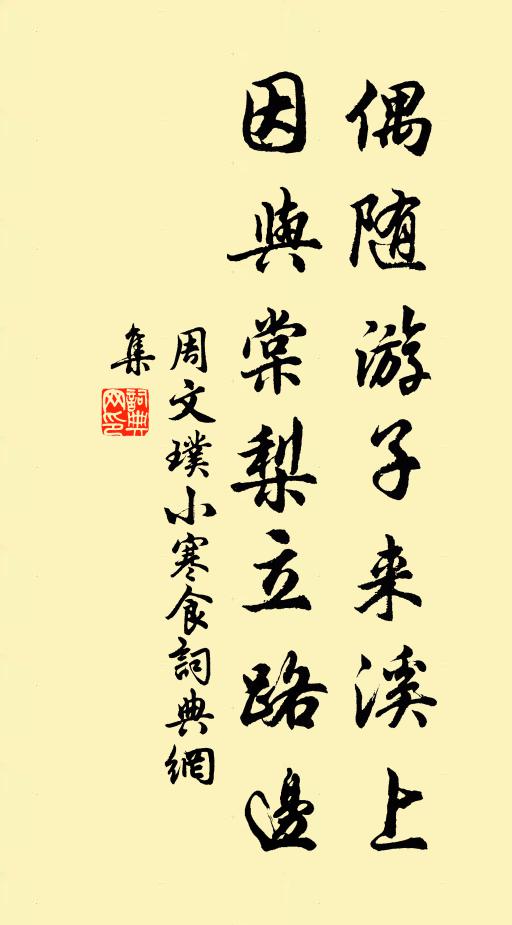 偶随游子来溪上
因與棠梨立路邊
周文璞小寒食詞典網
集
詞典网印